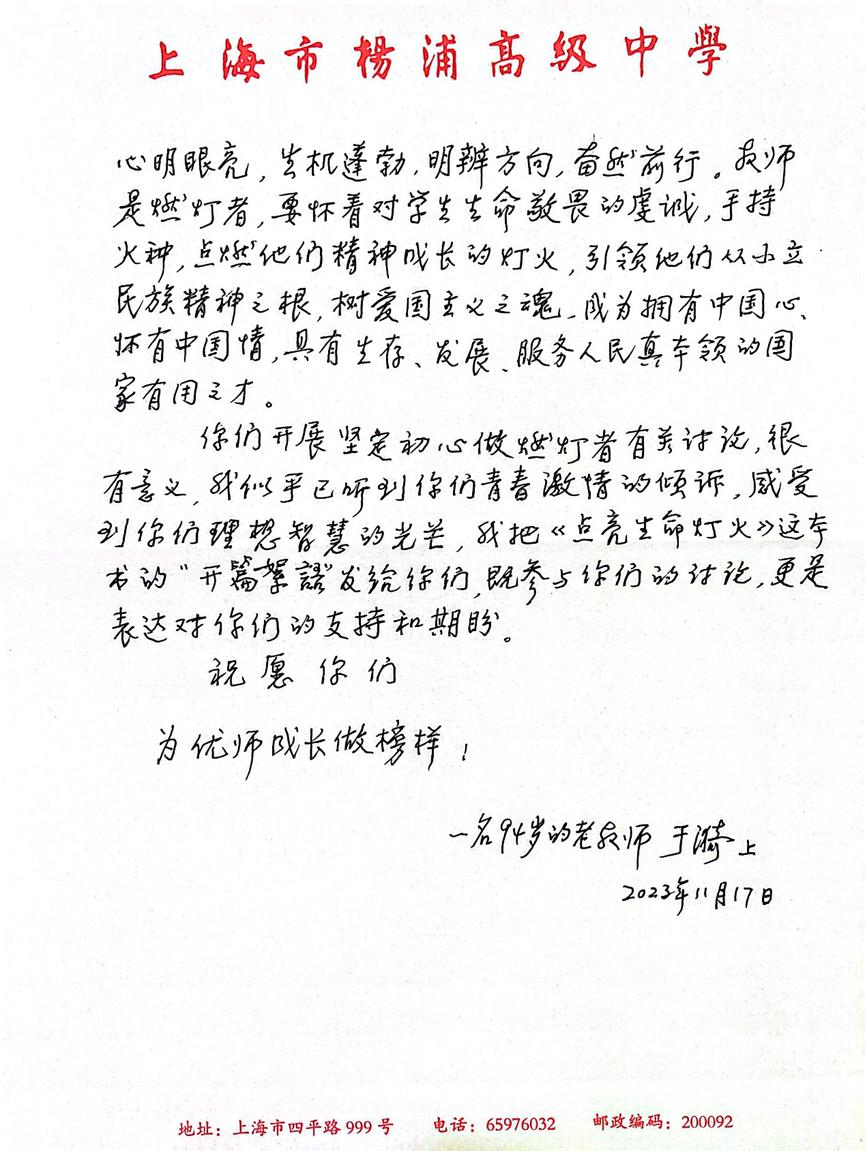 上海市楊浦高级中學
心明眼亮，生机蓬勃，明辨方向，奋然前行。教师
是燃灯者，要怀着对学生生命敬畏的虔诚，手持
火种，点燃他们精神成长的灯火，引领他们从小立
民族精神之根，树爱国主义之魂，成为拥有中国心、
怀有中国情，具有生存、发展、服务人民真本领的国
家有用之才。
你们开展坚定初心做燃灯者有关讨论，很
有意义，我似乎已听到你们青春激情的倾诉，感受
到你们理想智慧的光芒，我把《点亮生命灯火》这本
书的“开篇絮語”发给你们，既参与你们的讨论，更是
表达对你们的支持和期盼。
祝愿你们
为优师成长做榜样！
一名94岁的老教师 于漪上
2023年11月17日
地址：上海市四平路999号 电话：65976032 邮政编码：200092